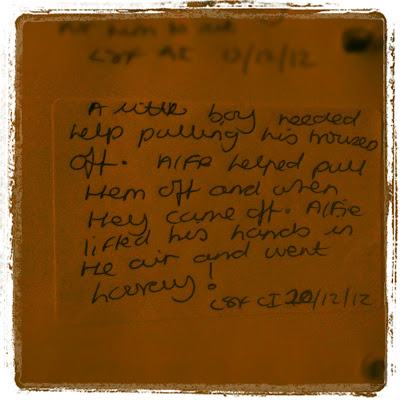 A little boy needed
help pulling his trousers
off. Alfie helped pull
them off and when
they came off. Alfie
lifted his hands in
the air and went
hurray!
20/12/12